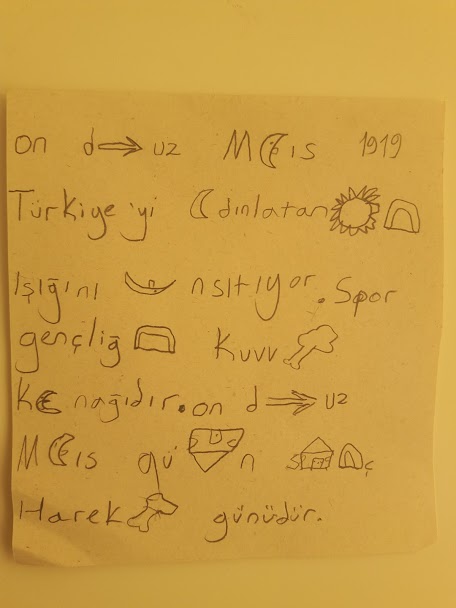 on d uz M ıs 1919
Türkiye'yi dınlatan
Işığını nsıtıyor. Spor
gençliğ Kuvv
K nağıdır. on d uz
M ıs gü n s ç
Harek günüdür.